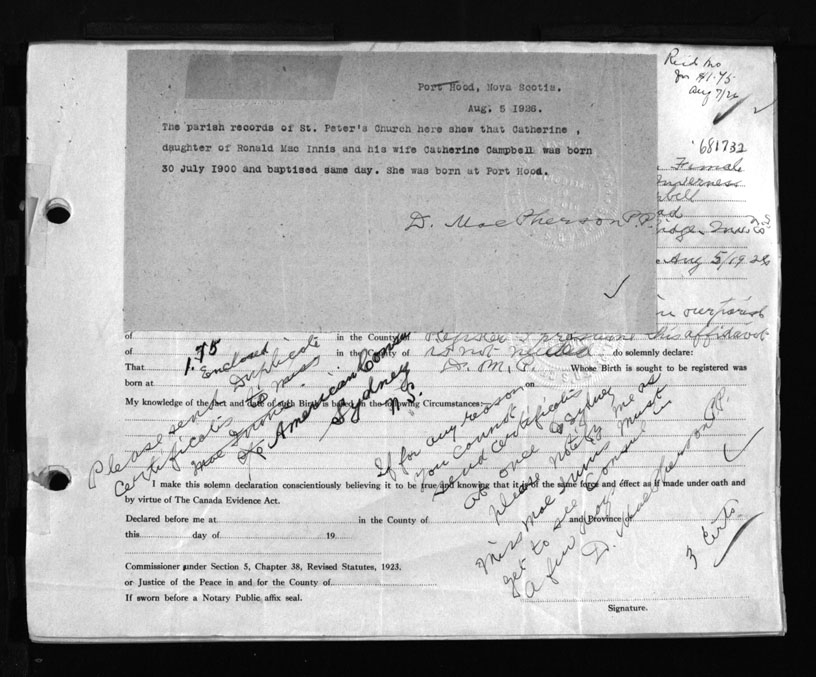 Port Hood, Nova Scotia.
Aug. 5 1926.
The parish records of St. Peter's Church here shew that Catherine ,
daughter of Ronald Mac Innis and his wife Catherine Campbell was born
30 July 1900 and baptised same day. She was born at Port Hood.
D. MacPherson P.P.
Aug 7/26
681732
Female
Inverness
Aug 5/1926
in our parish
of in the County of Register I presume this affidavit
of in the County of is not needed. do solemnly declare:
That D. M. P. Whose Birth is sought to be registered was
born at on
My knowledge of the fact and date of such Birth is based on the following Circumstances:—
1.75 Enclosed
Please send Duplicate
Certificate to Miss
Mac Innis
To American Consul
Sydney
N.S.
If for any reason
you cannot
send certificate
at once to Sydney
please notify me as
Miss Mac Innis must
get to see Consul in
a few days.
D. MacPherson P.P.
3 Certs
I make this solemn declaration conscientiously believing it to be true and knowing that it is of the same force and effect as if made under oath and
by virtue of The Canada Evidence Act.
Declared before me at in the County of and Province of
this day of 19
Commissioner under Section 5, Chapter 38, Revised Statutes, 1923.
or Justice of the Peace in and for the County of
If sworn before a Notary Public affix seal.
Signature.